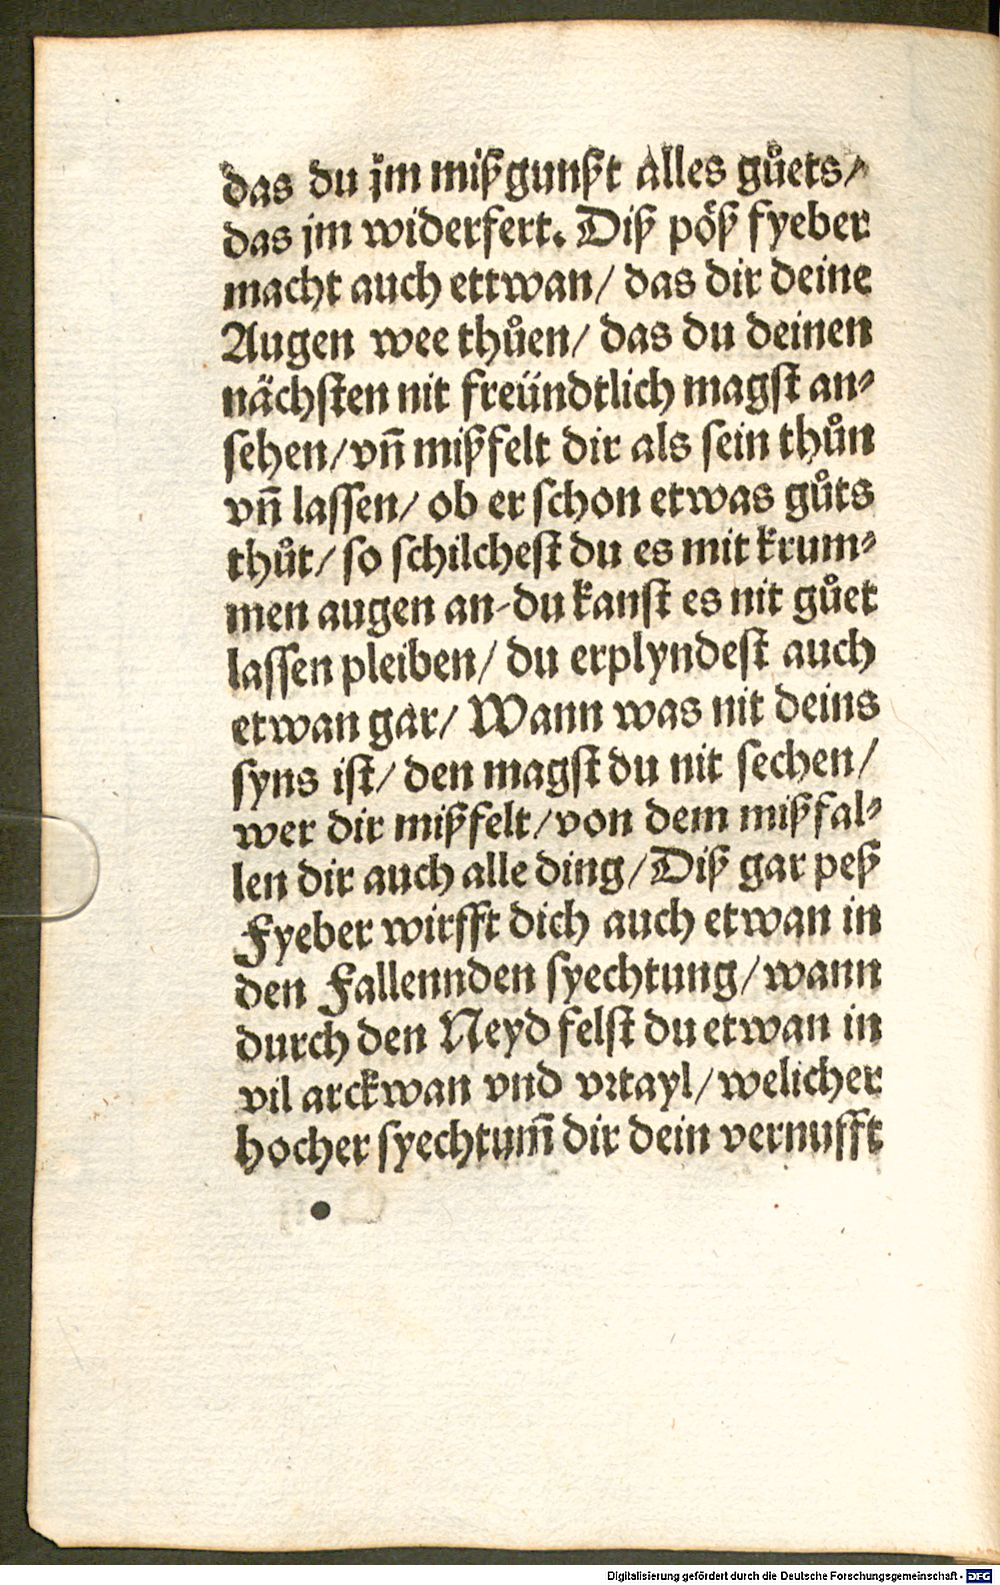 das du jm mißgunßt alles guͤets/
das jm widerfert. Diß pöß fyeber
macht auch ettwan/ das dir deine
Augen wee thuͦen/ das du deinen
nächſten nit freündtlich magſt an⸗
ſehen/ vñ mißfelt dir als ſein thuͦn
vñ laſſen/ ob er ſchon etwas guͦts
thuͦt/ ſo ſchilcheſt du es mit krum⸗
men augen an-du kanſt es nit guͦet
laſſen pleiben/ du erplyndeſt auch
etwan gar/ Wann was nit deins
ſyns iſt/ den magſt du nit ſechen/
wer dir mißfelt/ von dem mißfal⸗
len dir auch alle ding/ Diß gar peß
Fyeber wirfft dich auch etwan in
den Fallennden ſyechtung/ wann
durch den Neyd felſt du etwan in
vil arckwan vnd vꝛtayl/ welicher
hocher ſyechtum̃ dir dein vernufft
Digitalisierung gefördert durch die Deutsche Forschungsgemeinschaft - DFG